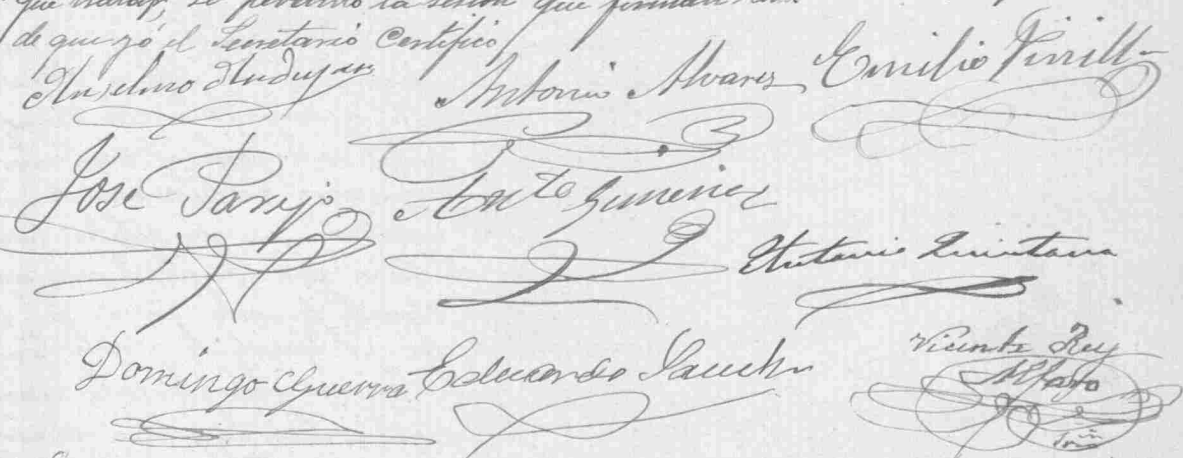 que se la sesión que firman
de que yó el Secretario Certifico
Anselmo Andujar Antonio Alvarez Emilio Pinilla
José Parejo Ant.to Gimenez
Antonio Quintana
Domingo Guerra Eduardo Sanch
Vicente Rey
Alfaro
Srio